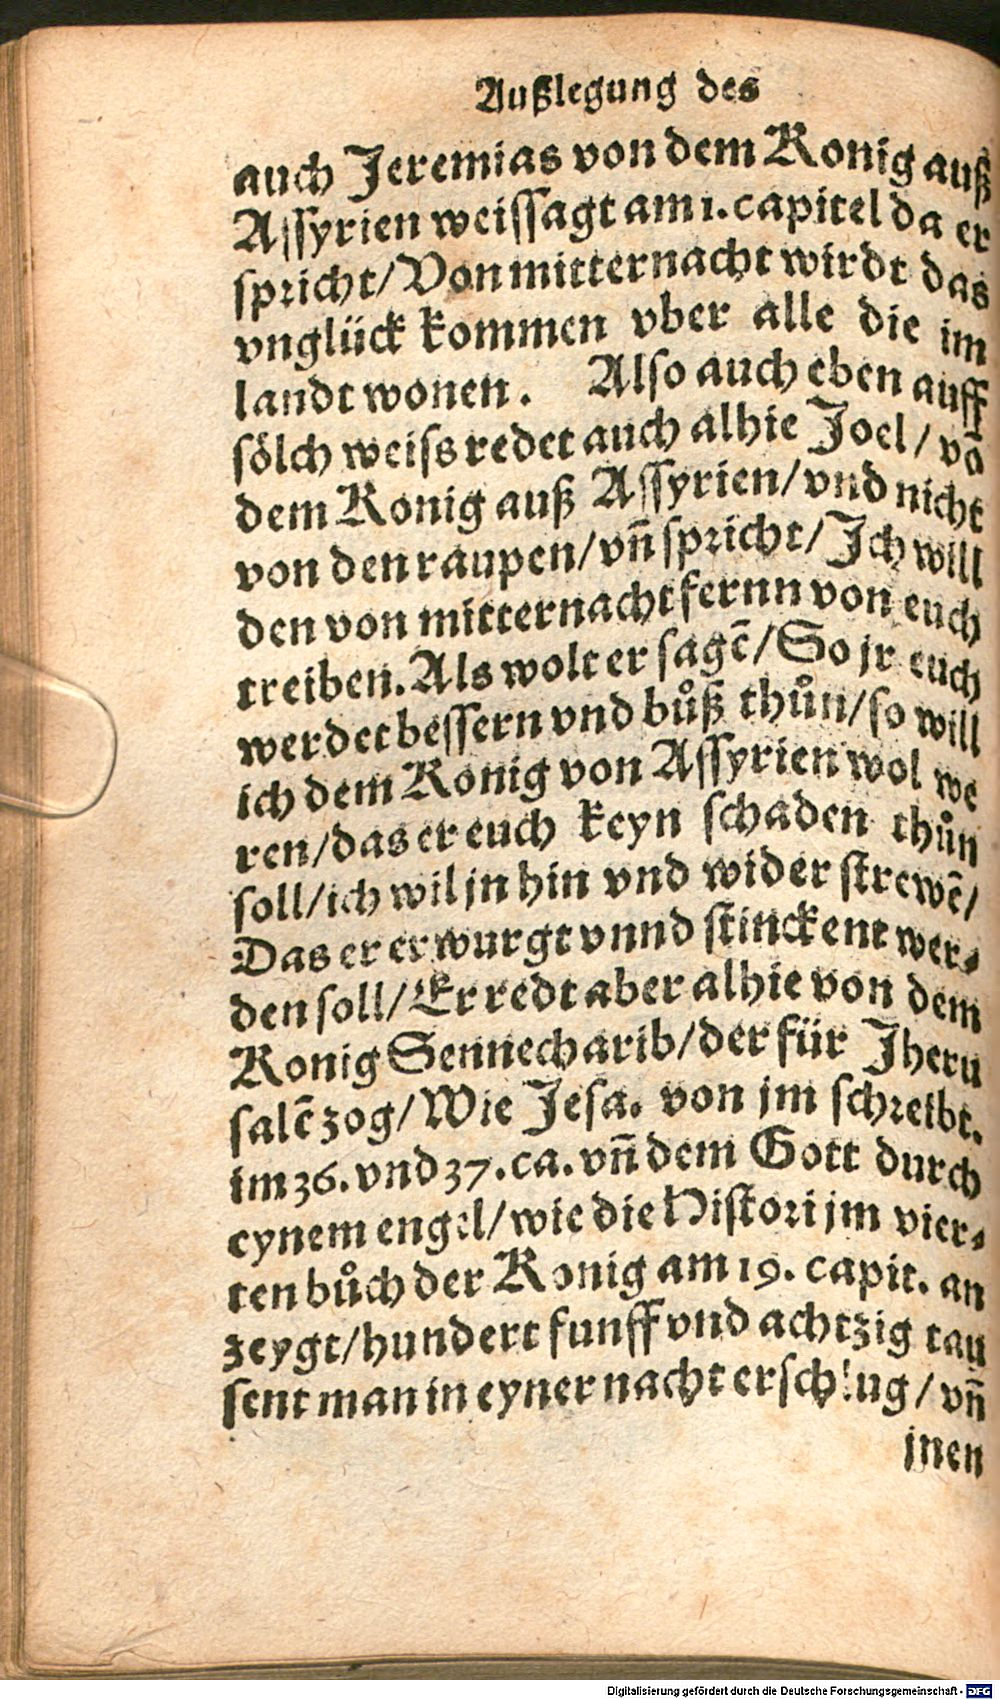 Außlegung des
auch Jeremias von dem Konig auß
Assyrien weissagt am 1. capitel da er
spricht/ Von mitternacht wirdt das
vnglück kommen vber alle die im
landt wonen. Also auch eben auff
sölch weiss redet auch alhie Joel/ vō
dem Konig auß Assyrien/ vnd nicht
von den raupen/ vñ spricht/ Ich will
den von mitternacht fernn von euch
treiben. Als wolt er sagē/ So jr euch
werdet bessern vnd bůß thůn/ so will
ich dem Konig von Assyrien wol we
ren/ das er euch keyn schaden thůn
soll/ ich wil jn hin vnd wider strewē/
Das er erwurgt vnnd stinckent wer⸗
den soll/ Er redt aber alhie von dem
Konig Sennecharib/ der für Jheru
salē zog/ Wie Jesa. von jm schreibt.
im 36. vnd 37. ca. vñ dem Gott durch
eynem engel/ wie die Histori jm vier⸗
ten bůch der Konig am 19. capit. an
zeygt/ hundert funff vnd achtzig tau
sent man in eyner nacht erschlug/ vñ
jnen
Digitalisierung gefördert durch die Deutsche Forschungsgemeinschaft - DFG